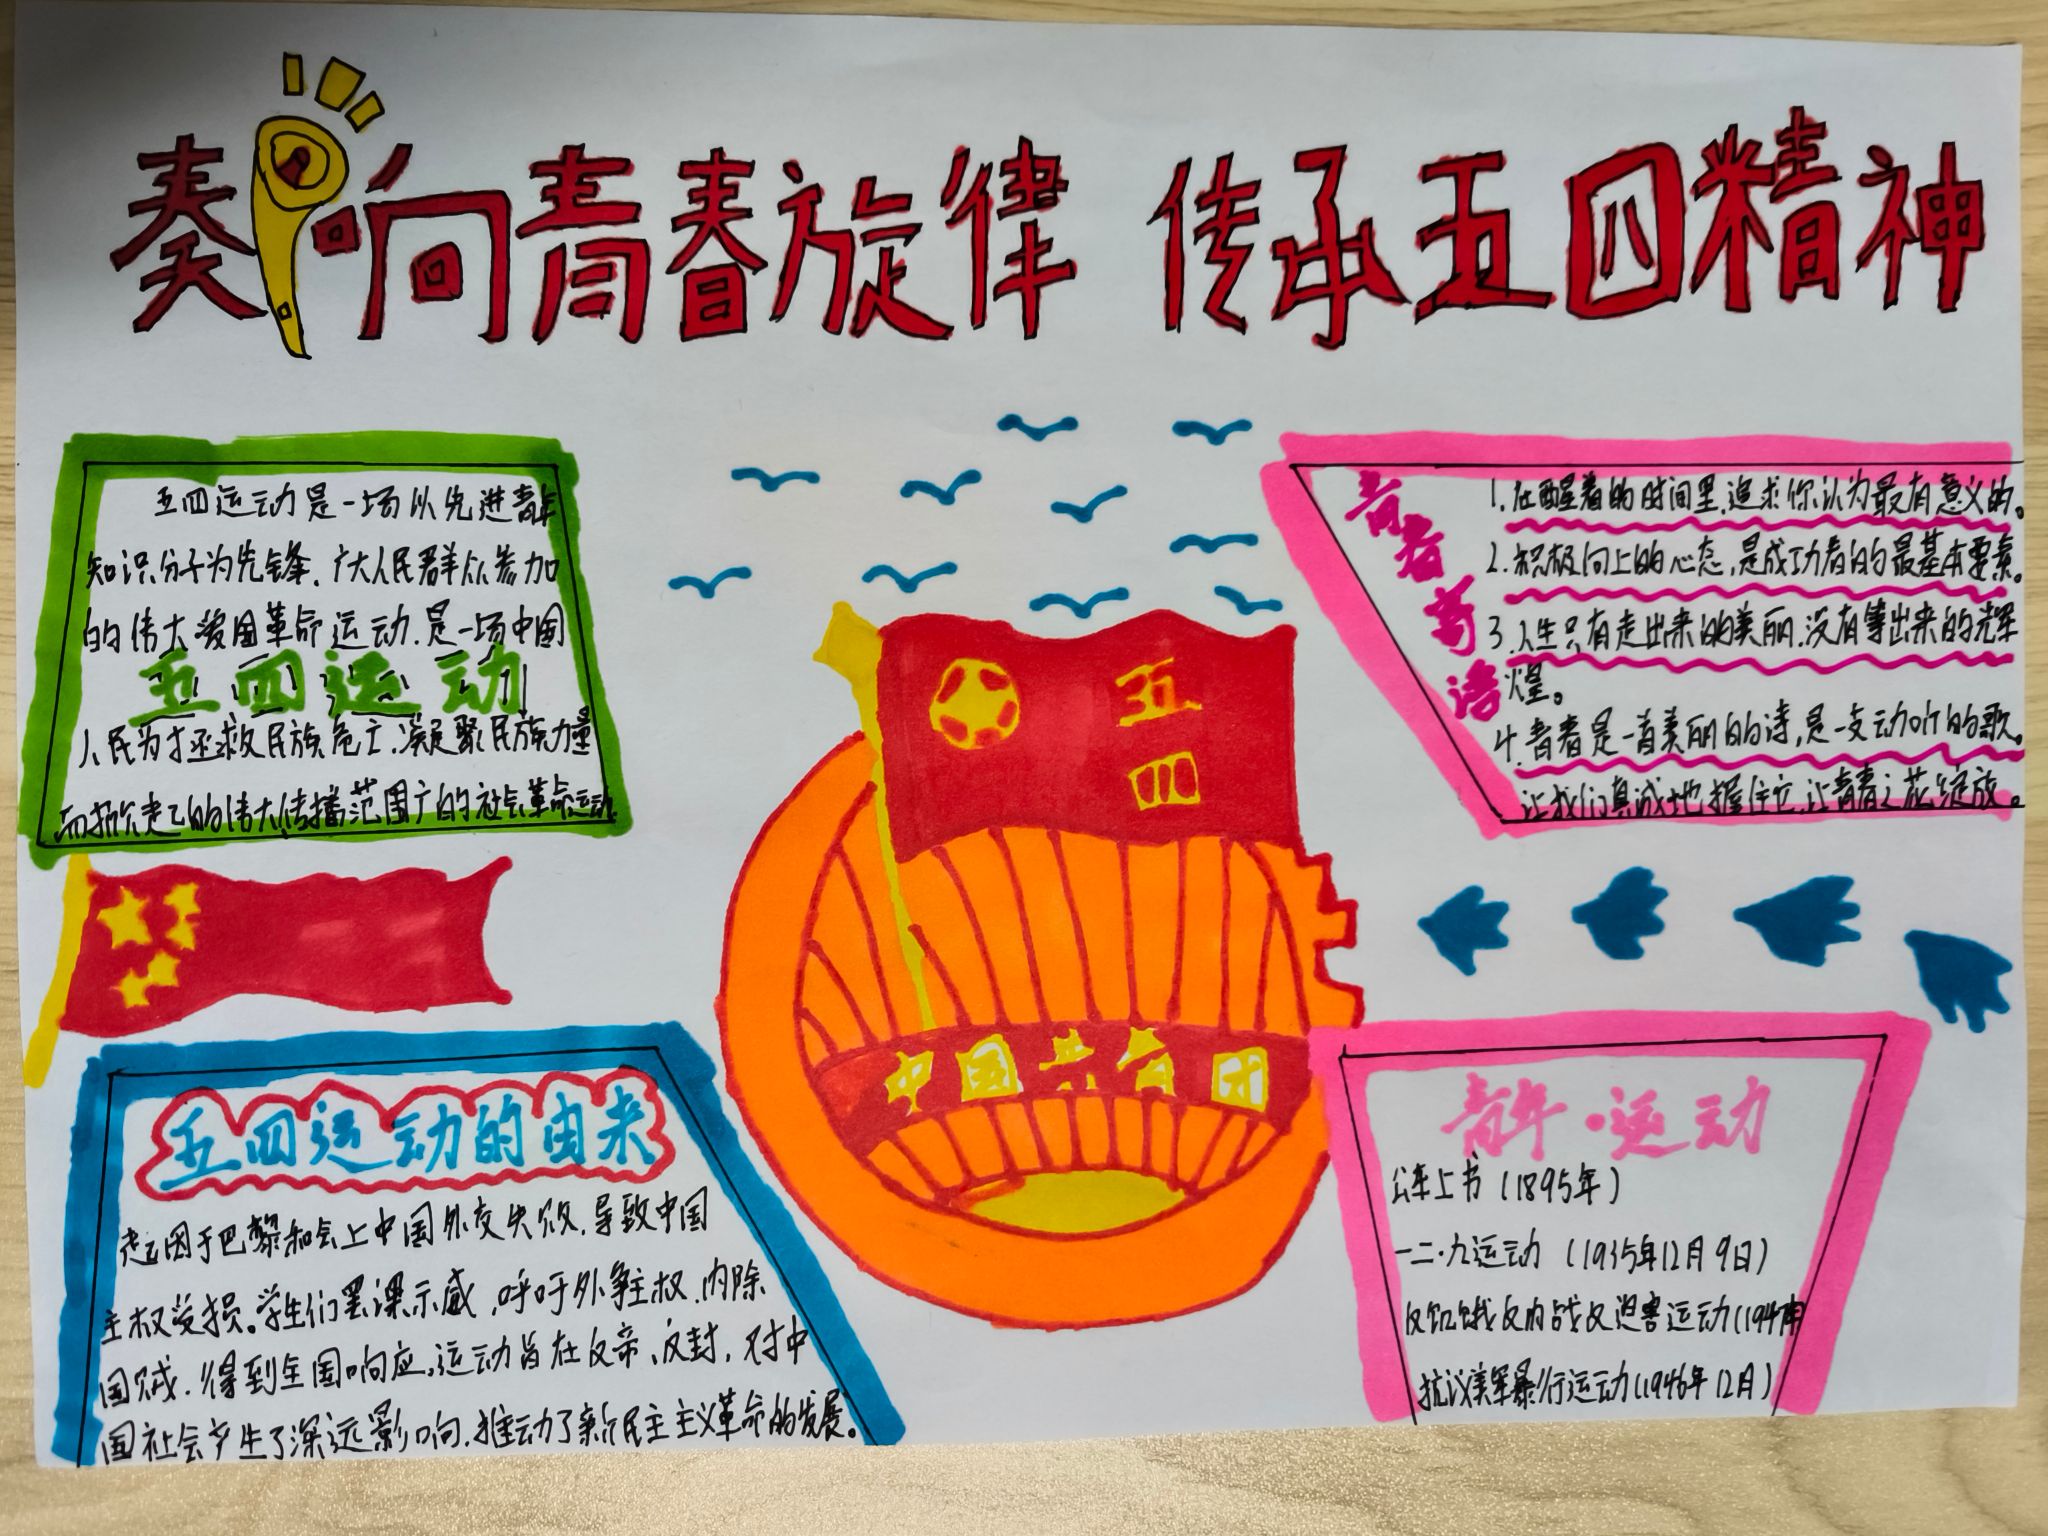 奏响青春旋律 传承五四精神
五四运动是一场以先进青年
知识分子为先锋、广大人民群众参加
的伟大爱国革命运动,是一场中国
五四运动
人民为拯救民族危亡、凝聚民族力量
而掀起的伟大传播范围广的社会革命运动
五四
中国共青团
青春寄语
1.在醒着的时间里,追求你认为最有意义的。
2.积极向上的心态,是成功者的最基本要素。
3.人生只有走出来的美丽,没有等出来的光辉
煌。
4.青春是一首美丽的诗,是一支动听的歌。
让我们真诚地握住它,让青春之花绽放。
五四运动的由来
起因于巴黎和会上中国外交失败,导致中国
主权受损。学生们罢课示威,呼吁外争主权,内除
国贼,得到全国响应。运动旨在反帝、反封,对中
国社会产生了深远影响,推动了新民主主义革命的发展。
青年·运动
公车上书(1895年)
一二·九运动(1935年12月9日)
反饥饿反内战反迫害运动(1947年
抗议美军暴行运动(1946年12月)